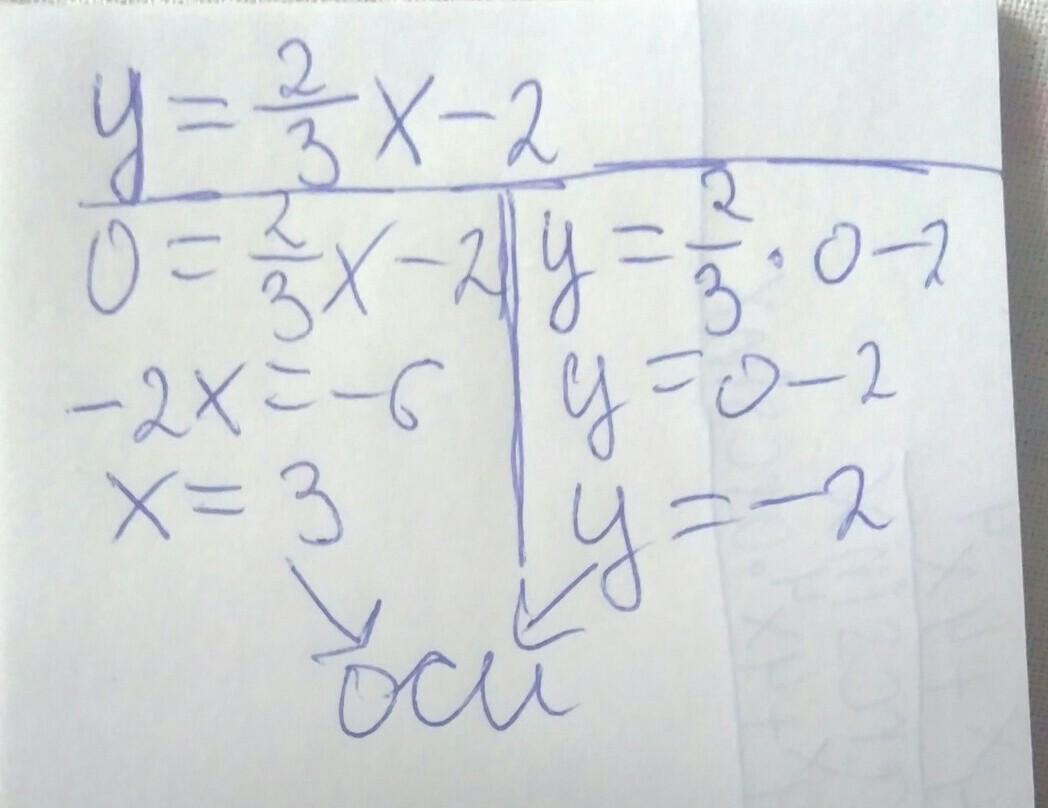 y = 2/3 x - 2
0 = 2/3 x - 2
-2x = -6
x = 3
y = 2/3 · 0 - 2
y = 0 - 2
y = -2
оси